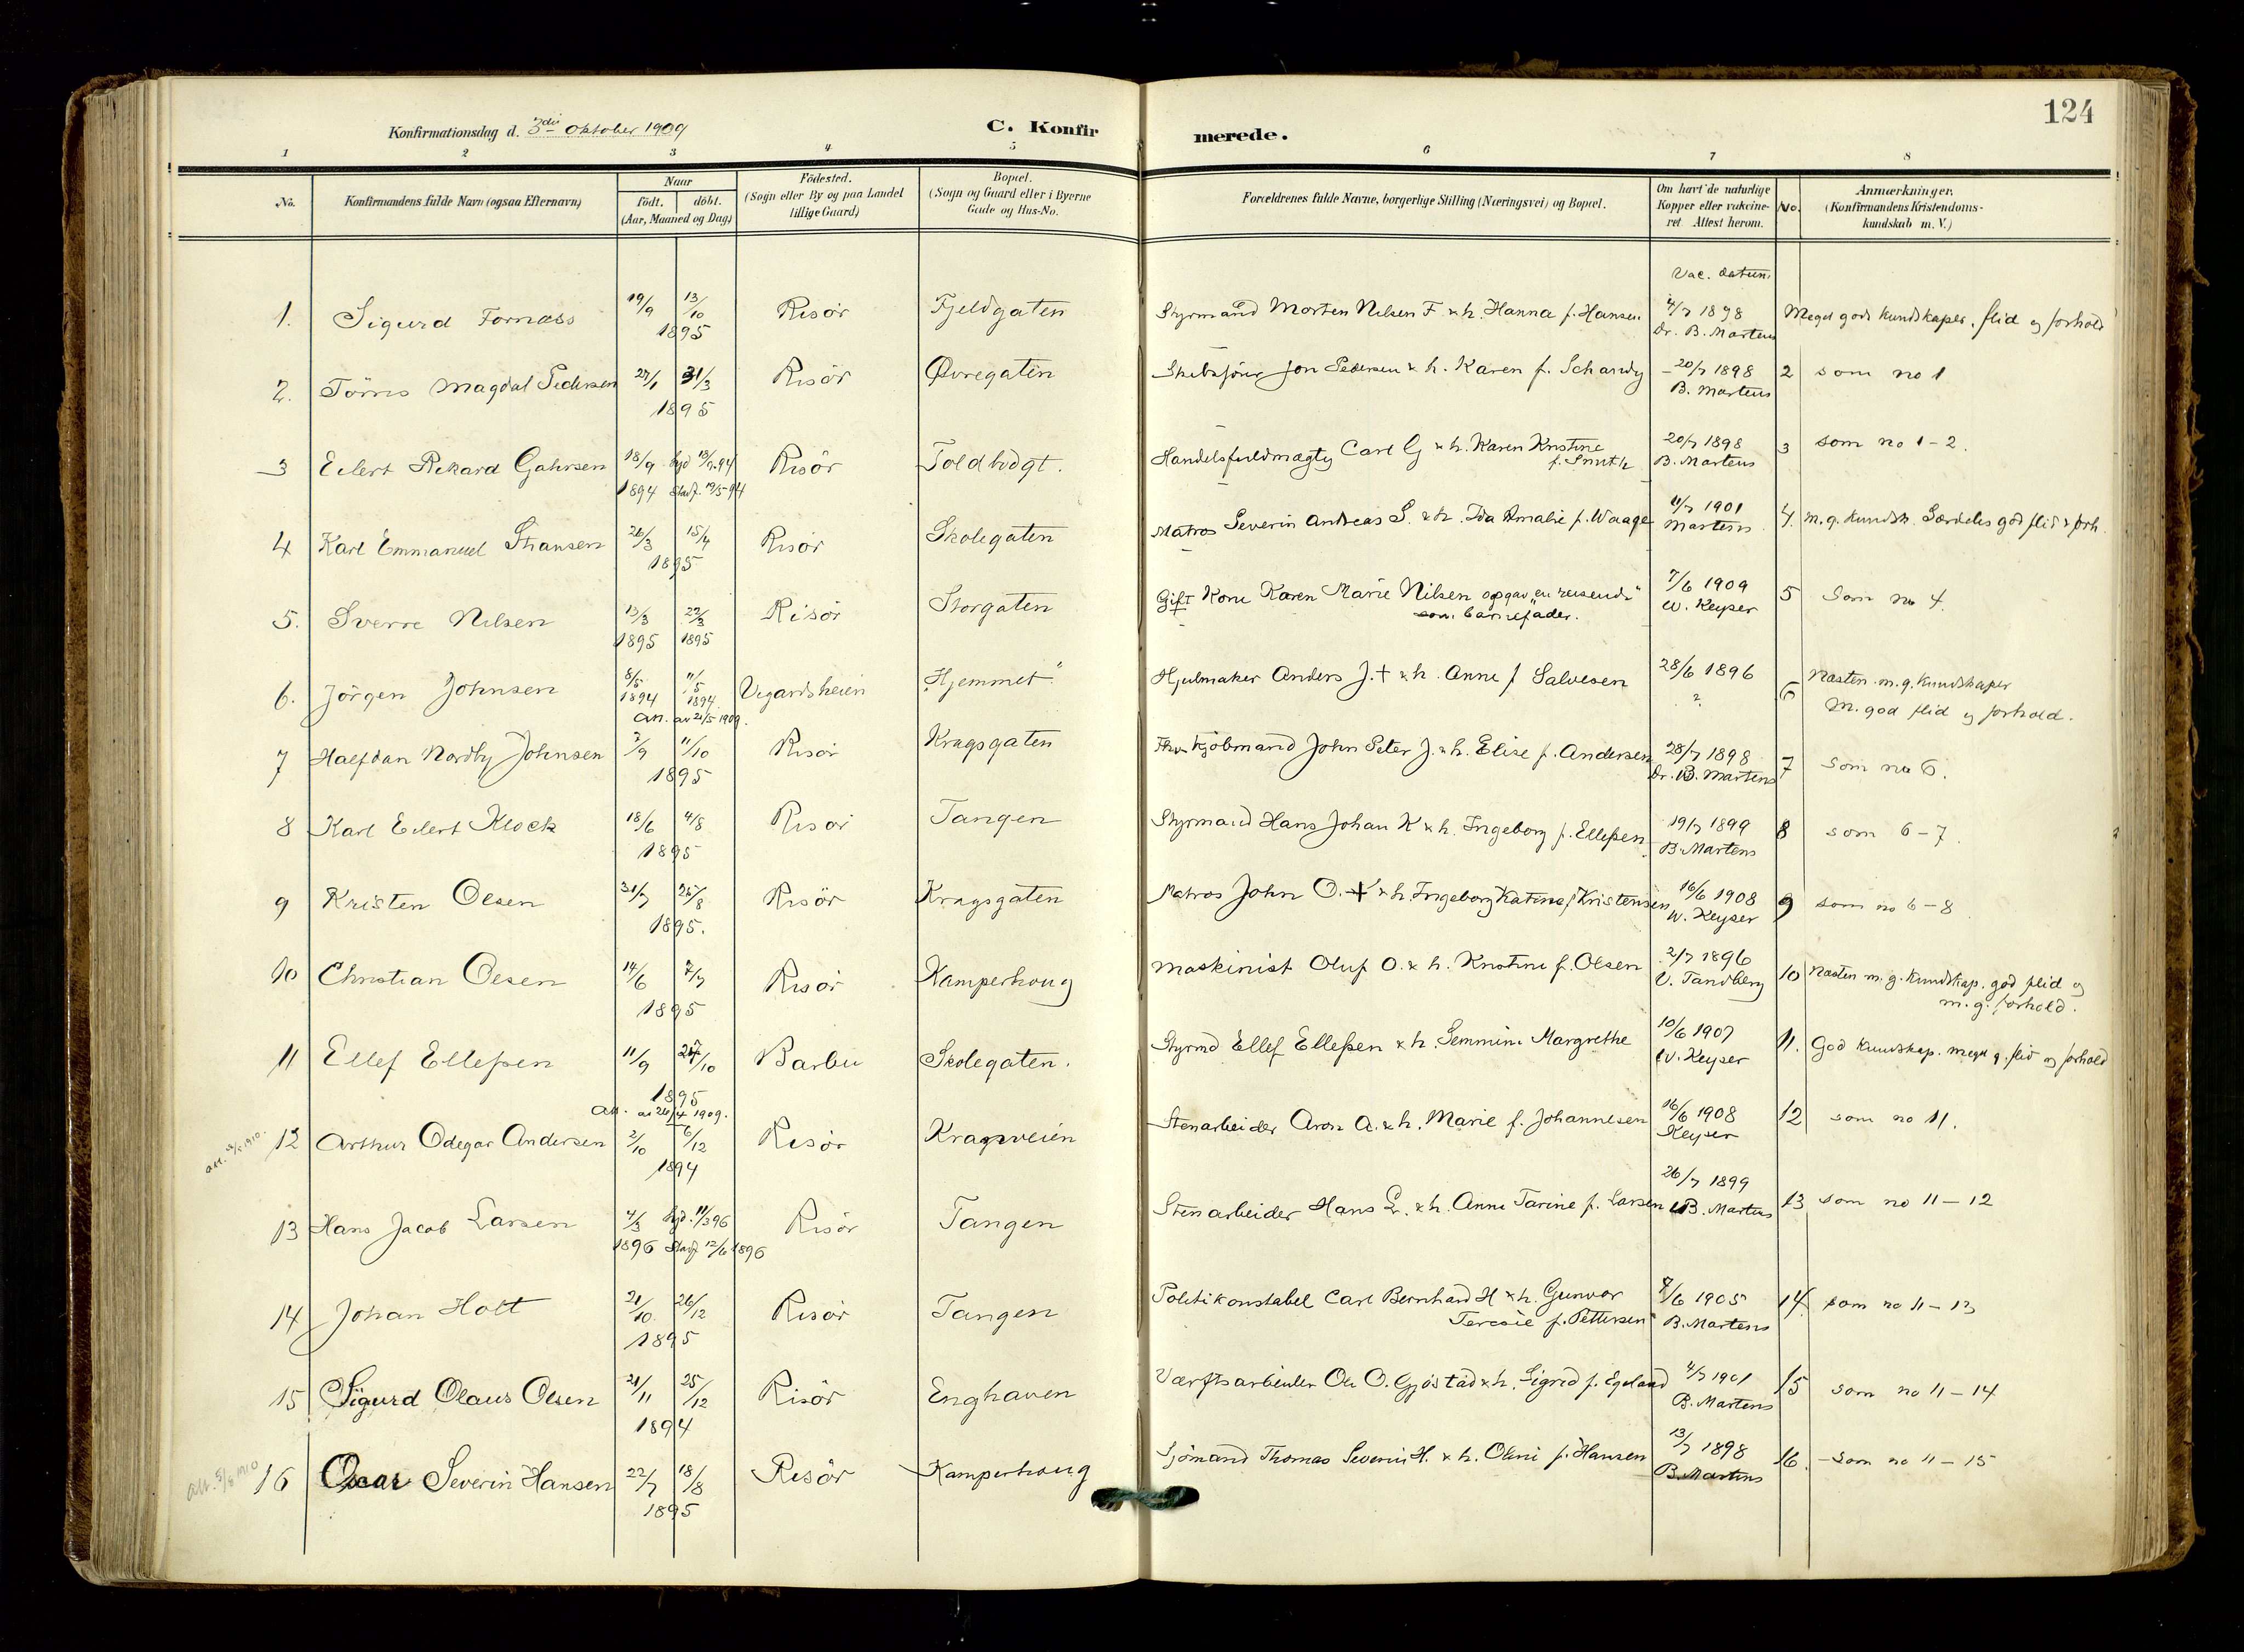 124
Konfirmationsdag d. 3die oktober 1909
C. Konfirmerede.
1 2 3 4 5 6 7 8
No. Konfirmandens fulde Navn (ogsaa Efternavn) Naar födt. döbt. (Aar, Maaned og Dag) Födested. (Sogn eller By og paa Landet tillige Gaard) Bopæl. (Sogn og Gaard eller i Byerne Gade og Hus-No. Forældrenes fulde Navne, borgerlige Stilling (Næringsvei) og Bopæl. Om havt de naturlige Kopper eller vakcineret Attest herom. No. Anmærkninger. (Konfirmandens Kristendomskundskab m. V.)
Vac. datum
1. Sigurd Fornæss 19/9 13/10 1895 Risör Fjeldgaten Styrmand Morten Nilsen F. & h. Hanna f. Hansen 4/7 1898 Dr. B. Martens Meget gode kundskaper, flid og forhold
2. Törres Magdal Pedersen 27/1 31/3 1895 Risör Øvregaten Skibsförer Jon Pedersen & h. Karen f. Schandy 20/7 1898 B. Martens 2 som no 1
3 Eilert Rikard Gahrsen 18/9 1894 Risör Toldbodgt. Handelsfuldmægtig Carl G & h. Karen Kristine f. Smith 20/7 1898 B. Martens 3 som no 1-2.
4 Karl Emmanuel 26/3 15/4 1895 Risör Skolegaten Matros Severin Andreas S. & h. Ida Amalie f. Waage 11/7 1901 Martens 4. m.g. kundsk. Særdeles god flid & forh.
5. Sverre Nilsen 13/3 1895 22/3 1895 Risör Storgaten Gift Kone Karen Marie Nilsen opgav "en reisende" som barnefader. 7/6 1909 W. Keyser 5 Som no 4.
6. Jörgen Johnsen 8/5 1894 11/5 1894 Vegardsheien "Hjemmet" Hjulmaker Anders J. † & h. Anne f Salvesen 28/6 1896 ? 6 Næsten m.g. kundskaper M. god flid og forhold.
Att. av 21/5 1909.
7 Halfdan Nordby Johnsen 2/9 11/10 1895 Risör Kragsgaten Kjöbmand John Peter J. & h. Elise f. Andersen 28/7 1898 Dr. B. Martens 7 som no 6.
8 Karl Eilert Klock 18/6 4/8 1895 Risör Tangen Styrmand Hans Johan K & h. Ingeborg f. Ellefsen 19/7 1899 B. Martens 8 som 6-7.
9 Kristen Olsen 31/7 25/8 1895. Risör Kragsgaten Matros John O. † & h. Ingeborg Katrine f. Kristensen 16/6 1908 W. Keyser 9 som no 6-8
10 Christian Olsen 14/6 7/7 1895 Risör Kamperhoug Maskinist Oluf O. & h. Kristine f. Olsen 2/7 1896 V. Tandberg 10 Næsten m.g. kundskap. god flid og m.g. forhold.
11 Ellef Ellefsen 11/9 27/10 1895 Barbu Skolegaten. Styrmd Ellef Ellefsen & h. Semmine Margrethe 10/6 1907 W. Keyser 11. God kundskap. meget g. flid og forhold
Att. av 26/4 1909.
12 Arthur Odegar Andersen 2/10 6/12 1894 Risör Kragsveien Stenarbeider Aron A. & h. Marie f. Johannesen 16/6 1908 Keyser 12 som no 11.
13 Hans Jacob Larsen 4/3 1896 hjd. 11/3 96 Stadf. 12/6 1896 Risör Tangen Stenarbeider Hans L. & h. Anne Tarine f. Larsen 26/7 1899 B. Martens 13 som no 11-12
14 Johan Holt 21/10 26/12 1895 Risör Tangen Politikonstabel Carl Bernhard H & h. Gunvor Teresie f. Pettersen 8/6 1905 B. Martens 14 som no 11-13
15 Sigurd Olaus Olsen 21/11 25/12 1894 Risör Enghaven Værftsarbeider Ole O. Gjöstad & h. Sigrid f. Egeland 4/7 1901 B. Martens 15 som no 11-14
att. 5/8 1910 16 Oscar Severin Hansen 22/7 18/8 1895 Risör Kamperhoug Sjömand Thomas Severin H. & h. Oline f. Hansen 13/7 1898 B. Martens 16. som no 11-15